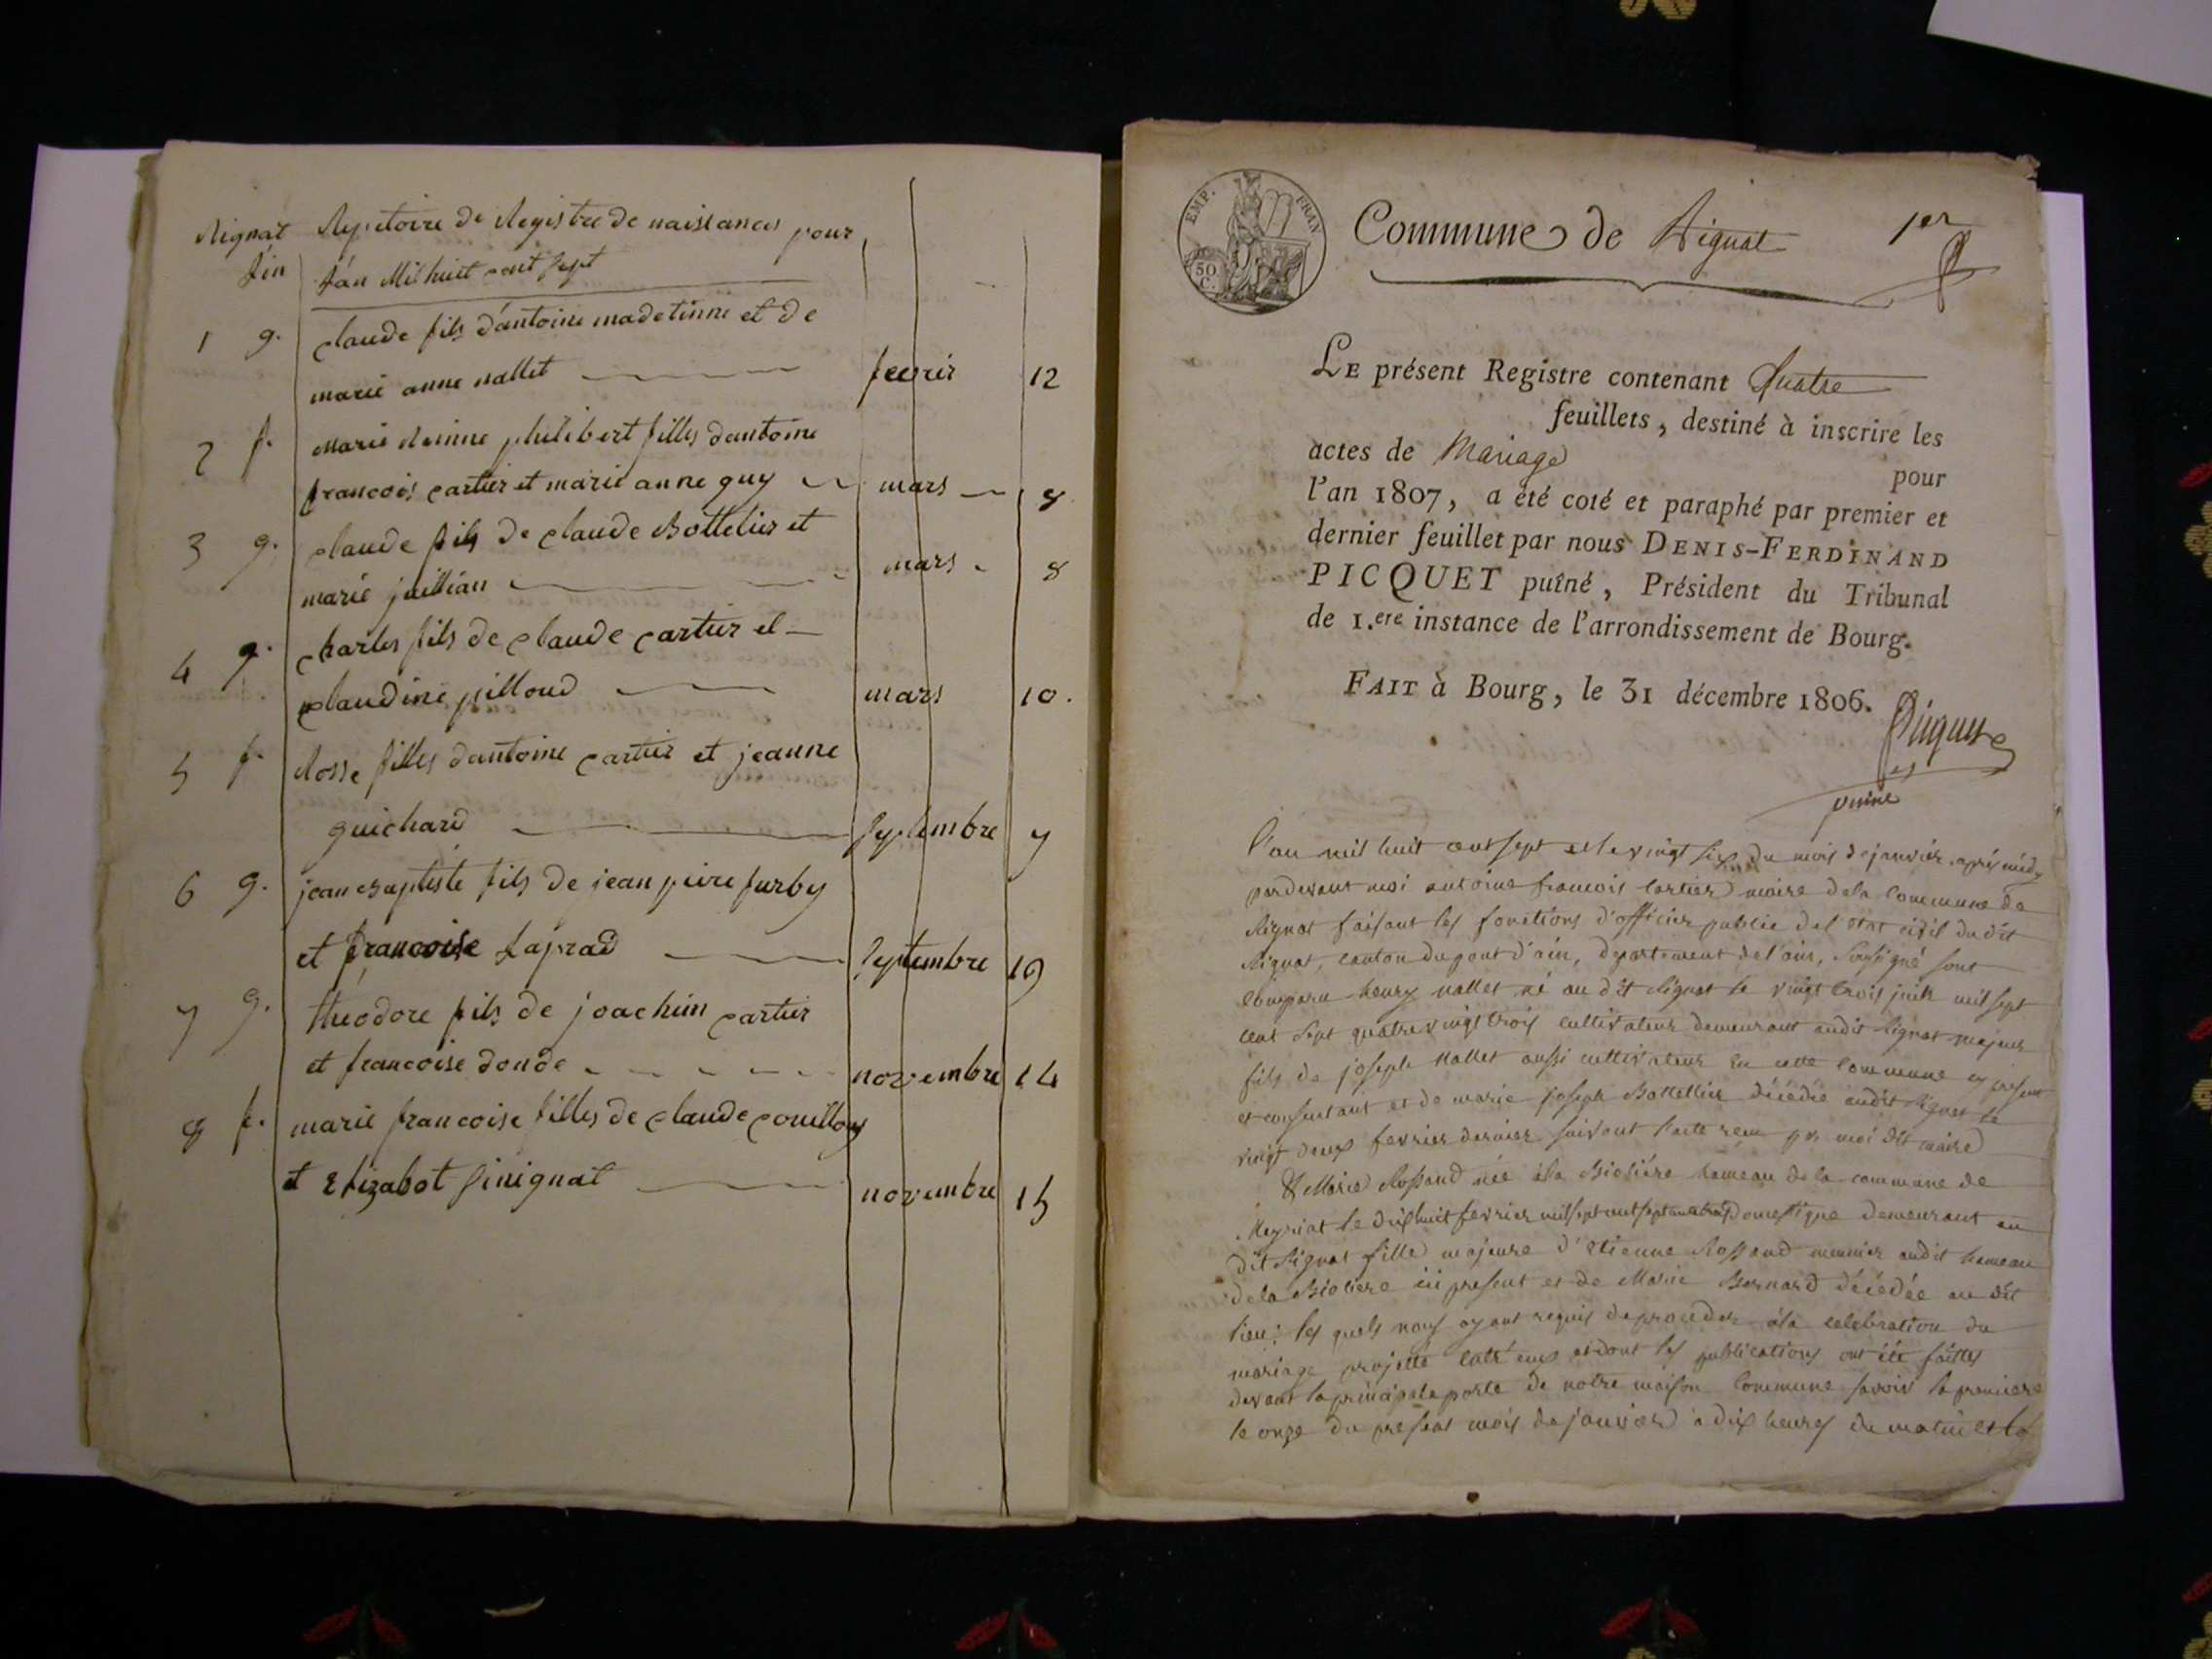 Rignat Repetoire de Registre de naissances pour
fin l'an Mil huit cent sept
1 g. claude fils d'antoine madetinne et de
marie anne nallet fevrir 12
2 f. marie philibert filles dantoine
francois cartier et marie anne guy mars 8
3 g. claude fils de claude Bottelier et
marie juillian mars 8
4 g. charles fils de claude cartier et
claudine pilloud mars 10.
5 f. Rosse filles dantoine cartier et jeanne
guichard septembre 7
6 g. jean Baptiste fils de jean piere furby
et francoise Laprad septembre 19
7 g. théodore fils de joachim cartier
et francoise donde novembre 14
8 f. marie francoise filles de claude couilloy
et Elizabot Sinignat novembre 15
EMP. FRAN
50
C.
Commune de Rignat 1er
LE présent Registre contenant Quatre
feuillets, destiné à inscrire les
actes de Mariage pour
l'an 1807, a été coté et paraphé par premier et
dernier feuillet par nous DENIS-FERDINAND
PICQUET puîné, Président du Tribunal
de 1.ere instance de l'arrondissement de Bourg.
FAIT à Bourg, le 31 décembre 1806.
Picquet
puiné
L'an mil huit cent sept et le vingt six du mois de janvier après midy
pardevant moi antoine francois Cartier maire de la Commune de
Rignat faisant les fonctions d'officier public de l'état civil du dit
Rignat, canton du pont d'ain, departement de l'ain, soussigné sont
comparu henry nallet né au dit Rignat le vingt trois juin mil sept
cent sept quatre vingt trois cultivateur demeurant audit Rignat majeur
fils de joseph Nallet aussi cultivateur en cette Commune cy present
et consentant et de marie joseph Bottellier décédée audit Rignat le
vingt deux fevrier dernier suivant l'acte recu par moi dit maire
& Marie Rossand née à la Bioliére hameau de la commune de
Meyriat le dixhuit fevrier mil sept cent domestique demeurant au
dit Rignat fille majeure d'étienne Rossand meunier audit hameau
de la Bioliere ici present et de Marie Bernard décédée au dit
lieu: les quels nous ayant requis de proceder à la celebration du
mariage projetté entr'eux et dont les publications ont été faittes
devant la principale porte de notre maison Commune savoir la premiere
le onze du present mois de janvier à dix heures du matin et la